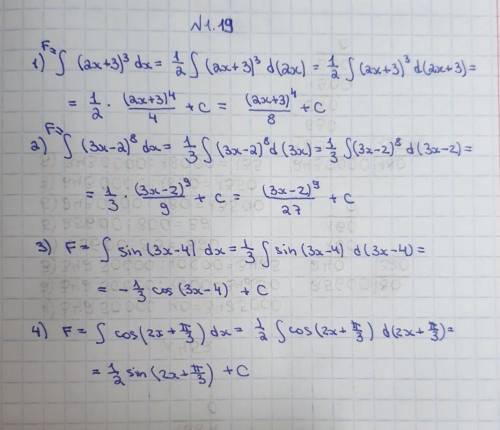 №1.19
1) F= ∫ (2x+3)³ dx = 1/2 ∫ (2x+3)³ d(2x) = 1/2 ∫ (2x+3)³ d(2x+3) =
= 1/2 · (2x+3)⁴/4 + C = (2x+3)⁴/8 + C
2) F= ∫ (3x-2)⁸ dx = 1/3 ∫ (3x-2)⁸ d(3x) = 1/3 ∫ (3x-2)⁸ d(3x-2) =
= 1/3 · (3x-2)⁹/9 + C = (3x-2)⁹/27 + C
3) F = ∫ sin (3x-4) dx = 1/3 ∫ sin (3x-4) d(3x-4) =
= - 1/3 cos (3x-4) + C
4) F = ∫ cos (2x + π/3) dx = 1/2 ∫ cos (2x + π/3) d(2x + π/3) =
= 1/2 sin (2x + π/3) + C